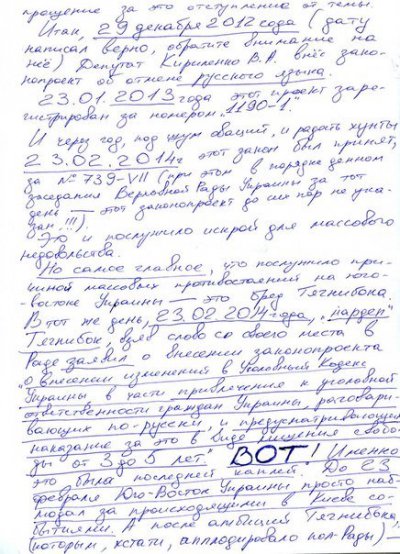 прощение за это отступление от темы.
Итак, 29 декабря 2012 года (дату
написал верно, обратите внимание на
неё) Депутат Кириленко В.А. внёс зако-
нопроект об отмене русского языка.
23.01.2013 года этот проект заре-
гистрирован за номером "1190-1".
И через год, под шум оваций, и радость хунты
23.02.2014г этот закон был принят,
за № 739-VII (при этом в порядке денном
заседания Верховной Рады Украины за тот
день — этот законопроект до сих пор не ука-
зан!!!).
Это и послужило искрой для массового
недовольства.
Но самое главное, что послужило при-
чиной массовых противостояний на юго-
-востоке Украины — это бред Тягнибока.
В тот же день, 23.02.2014 года, "нардеп"
Тягнибок, взяв слово со своего места в
Раде заявил о внесении законопроекта
"о внесении изменений в Уголовный Кодекс
Украины, в части привлечения к уголовной
ответственности граждан Украины, разговари-
вающих по-русски, и предусматривающей
наказание за это в виде лишения свобо-
ды от 3 до 5 лет." ВОТ! Именно
это была последней каплей. До 23
февраля Юго-Восток Украины просто наб-
людал за происходящими в Киеве со-
бытиями. А после амбиций Тягнибока
(которым, кстати, апплодировало пол-Рады) —